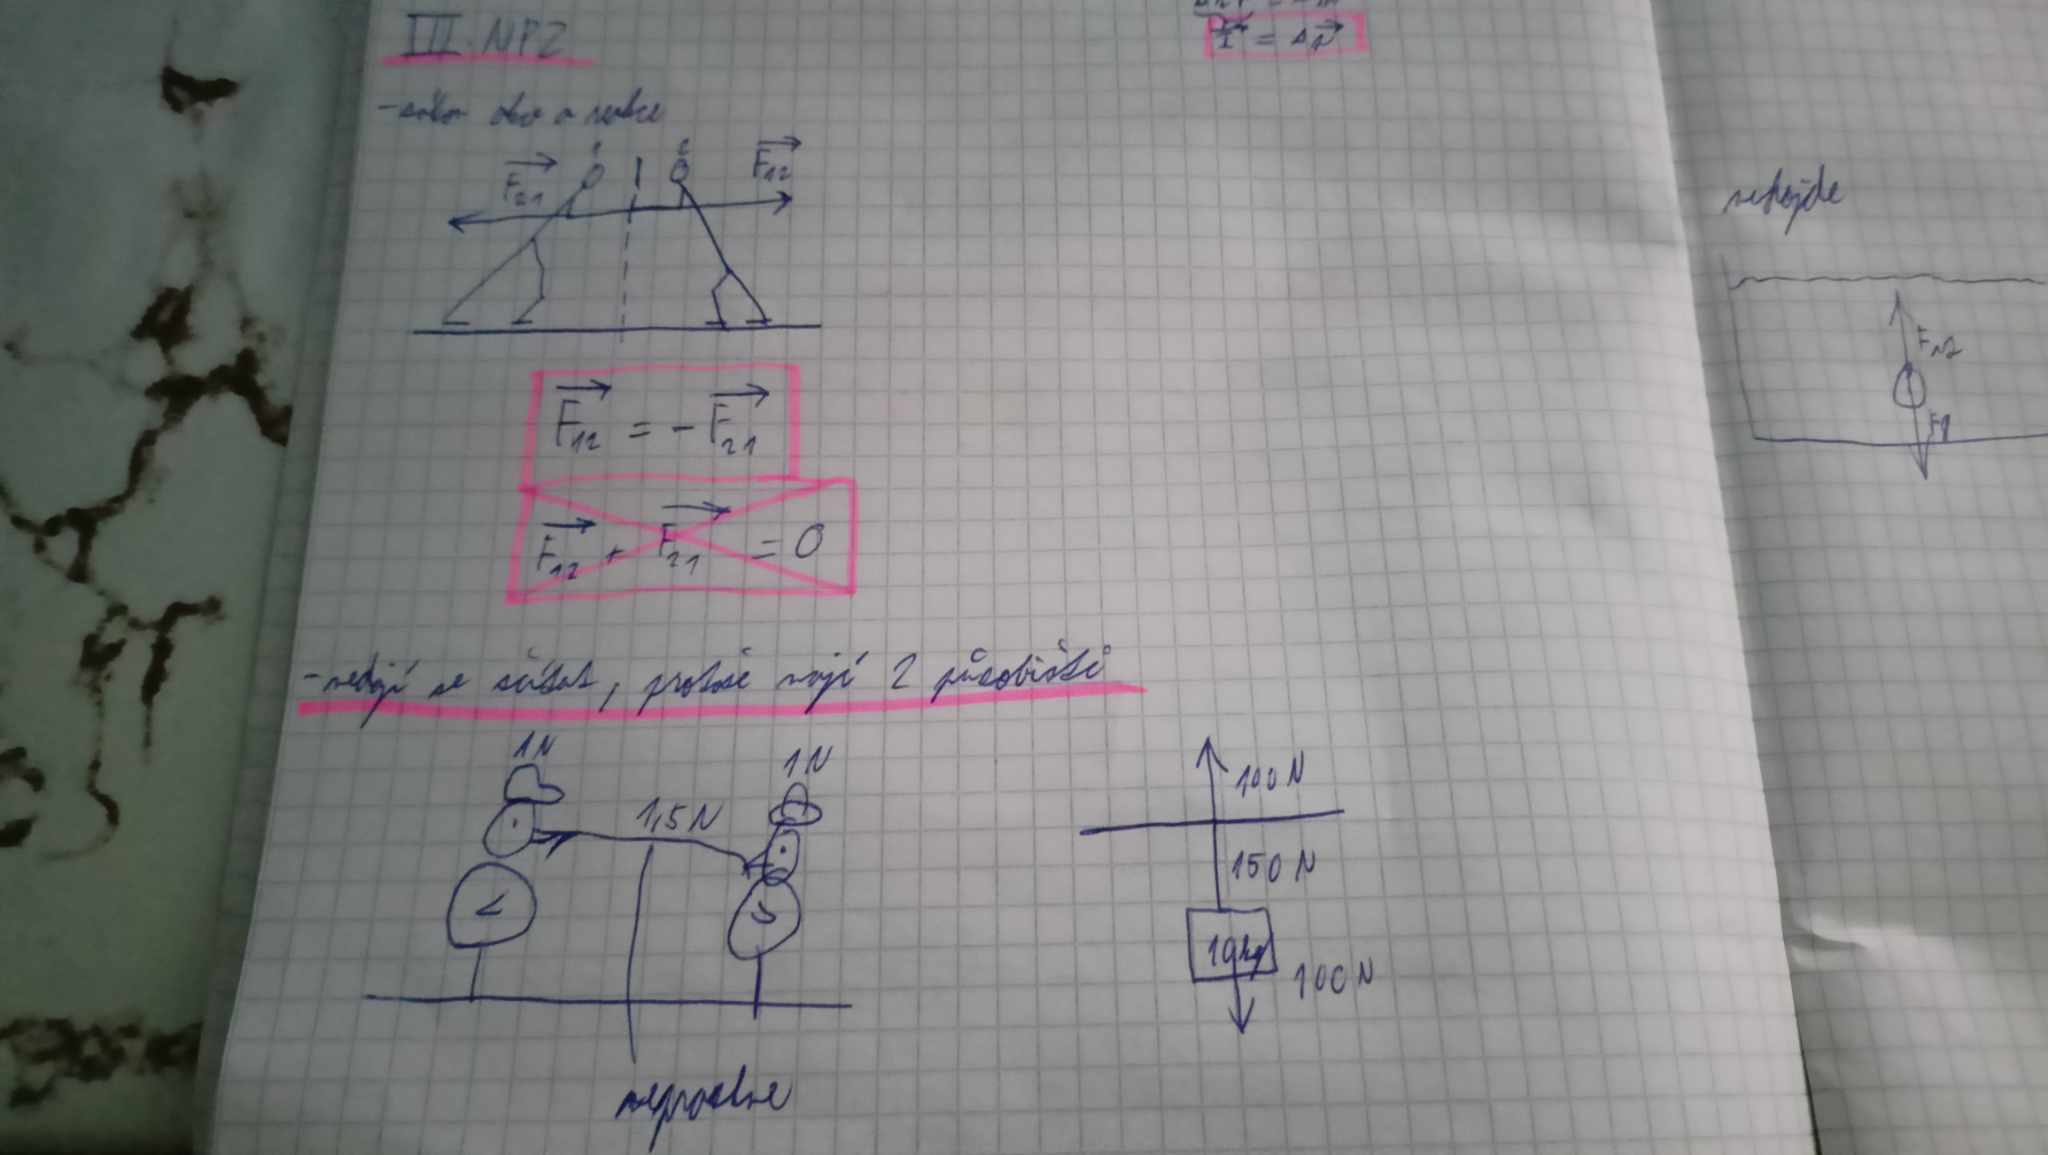 III. NPZ
I = Δp
- zákon akce a reakce
F21
1
2
F12
F12 = - F21
F12 + F21 = 0
- nedají se sčítat, protože mají 2 působiště
1N
1N
1,5N
nepraskne
100N
150N
10kg
100N
Fvz
Fg